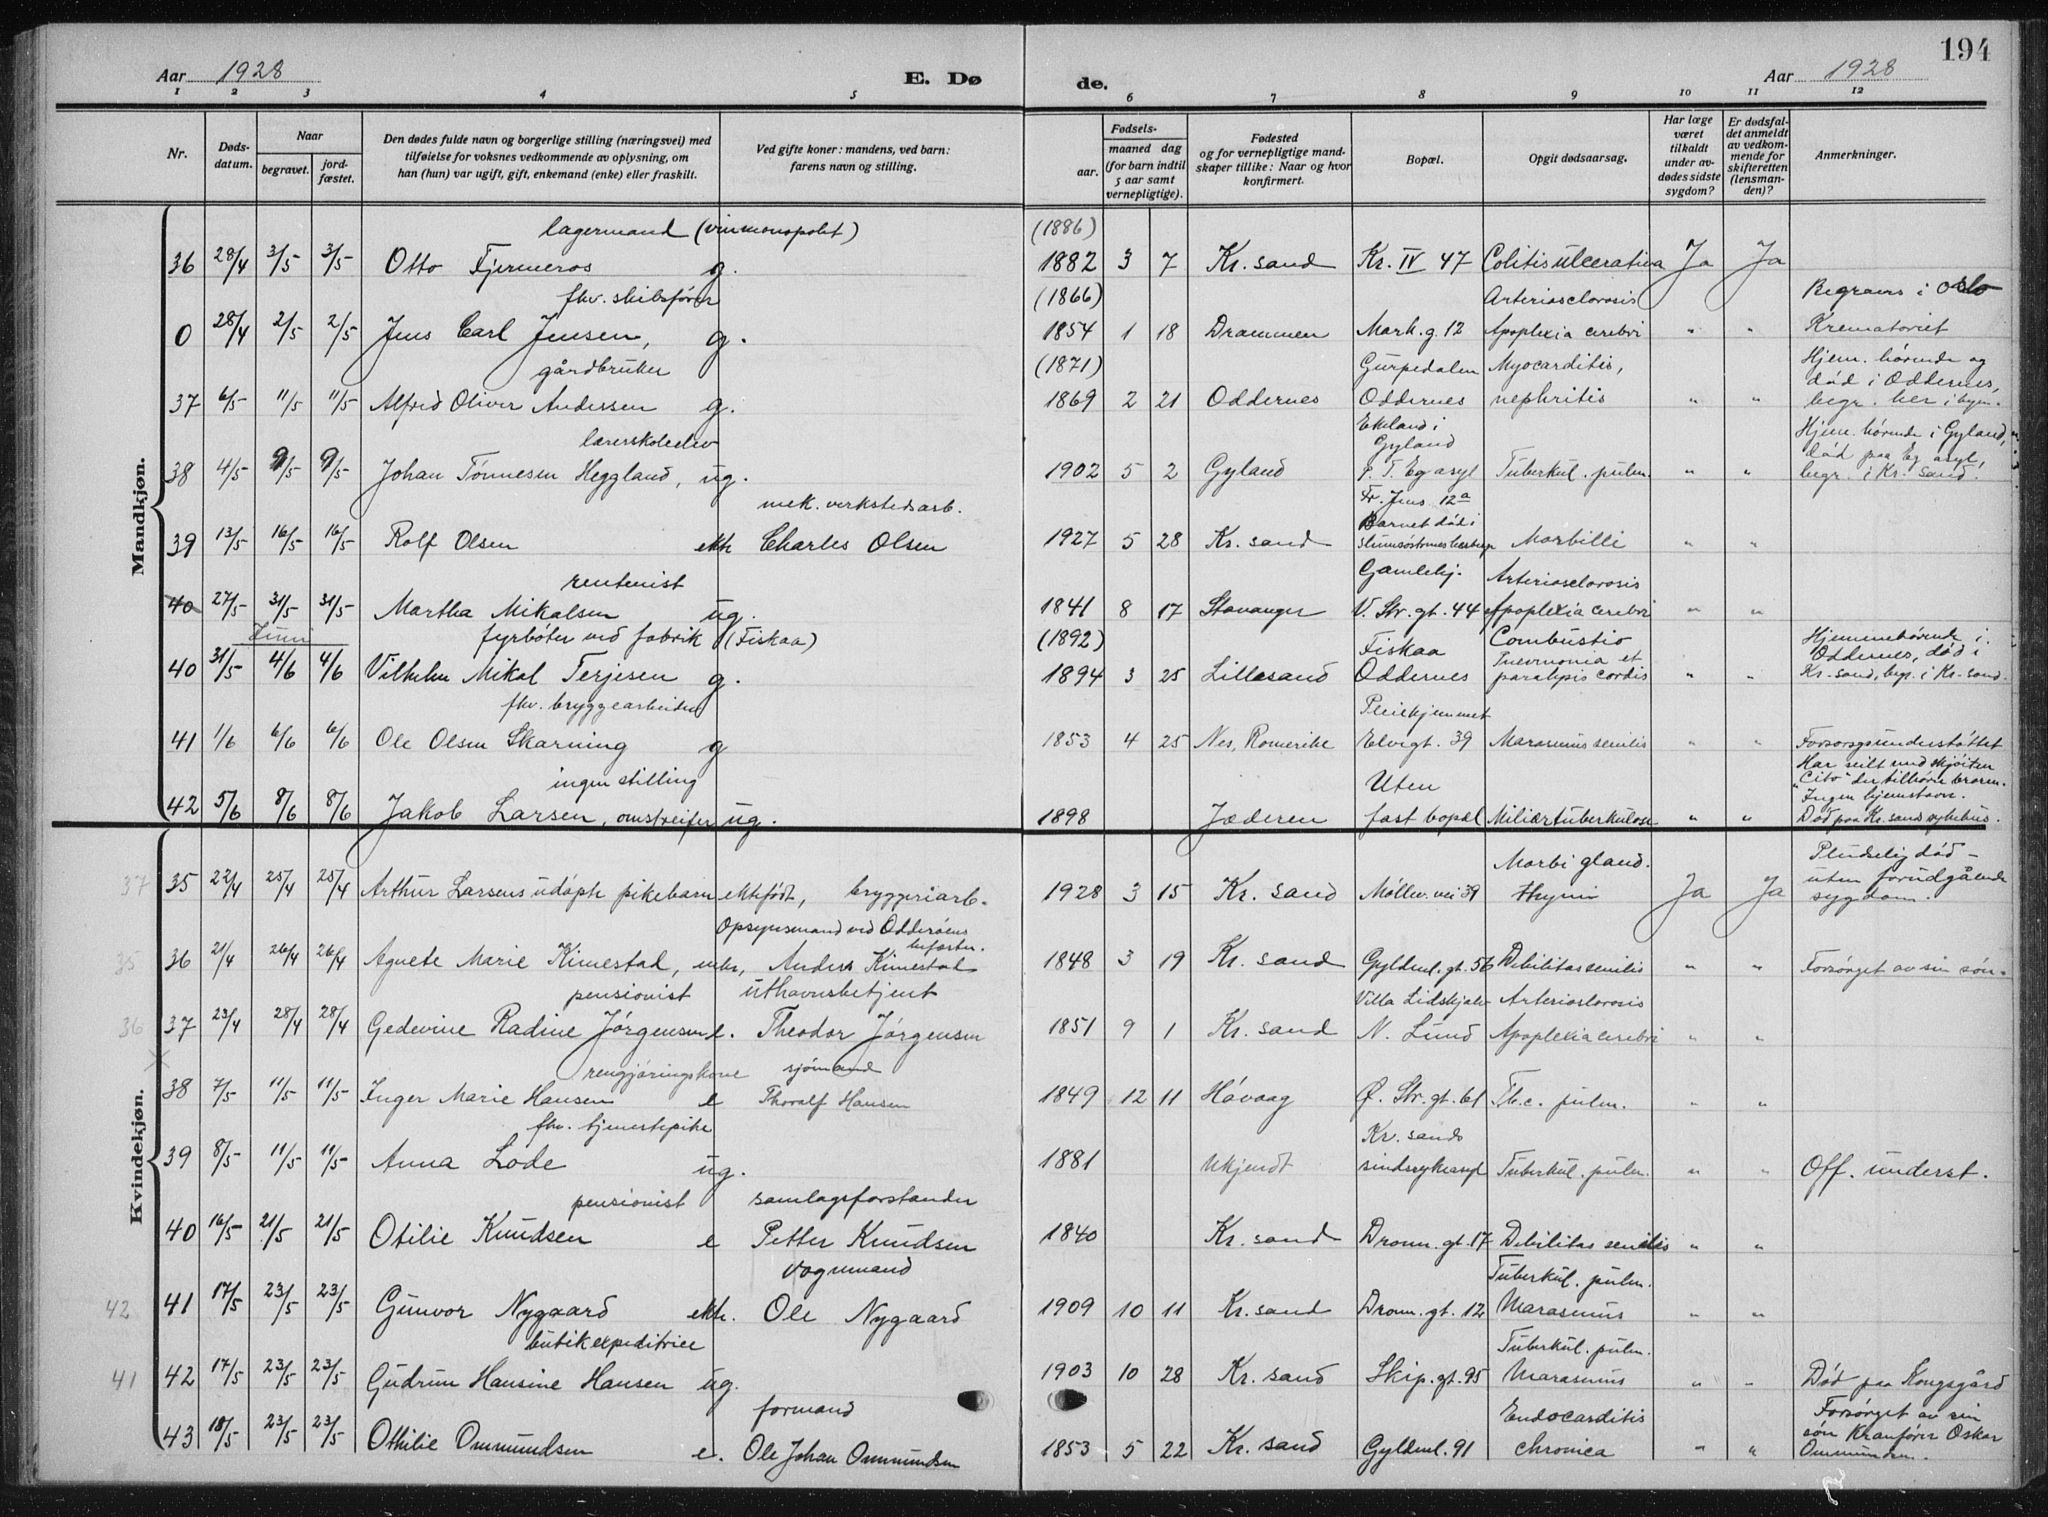 194
Aar 1928 E. Dø de. Aar 1928
1 2 3 4 5 6 7 8 9 10 11 12
Nr.
Døds-datum.
Naar
begravet.
jord-fæstet.
Den dødes fulde navn og borgerlige stilling (næringsvei) med
tilføielse for voksnes vedkommende av oplysning, om
han (hun) var ugift, gift, enkemand (enke) eller fraskilt.
Ved gifte koner: mandens, ved barn:
farens navn og stilling.
Fødsels-
aar. maaned dag
(for barn indtil
5 aar samt
vernepligtige).
Fødested
og for vernepligtige mand-
skaper tillike: Naar og hvor
konfirmert.
Bopæl.
Opgit dødsaarsag.
Har læge
været
tilkaldt
under av-
dødes sidste
sygdom?
Er dødsfal-
det anmeldt
av vedkom-
mende for
skifteretten
(lensman-
den)?
Anmerkninger.
Mandkjøn.
lagermand (vinmonopolet) (1886)
36 28/4 3/5 3/5 Otto Fjermeros g. 1882 3 7 Kr. sand Kr. IV 47 Colitis ulcerativa Ja Ja
fhv. skibsfører (1866) Arteriosclorosis Begraves i Oslo
0 28/4 2/5 2/5 Jens Carl Jensen, g. 1854 1 18 Drammen Mark. g. 12 Apoplexia cerebri " " Krematoriet
gårdbruker (1871) Gurpedalen Myocarditis, Hjem. hørende og
død i Oddernes,
37 6/5 11/5 11/5 Alfred Oliver Andersen g. 1869 2 21 Oddernes Oddernes nephritis " " begr. her i byen.
lærerskoleelev Ekeland i Gyland Hjem. hørende i Gyland,
død paa Eg asyl,
38 4/5 9/5 9/5 Johan Tønnesen Heggland, ug. 1902 5 2 Gyland p. T. Eg asyl Tuberkul. pulm. " " begr. i Kr. sand.
mek. verkstedsarb. Fr. Jens. 12a
Barnet død i
39 13/5 16/5 16/5 Rolf Olsen ekte Charles Olsen 1927 5 28 Kr. sand Morbilli " "
rentenist Gamlehj. Arteriosclorosis
40 27/5 31/5 31/5 Martha Mikalsen ug. 1841 8 17 Stavanger V. Str. gt. 44 Apoplexia cerebri " "
Juni fyrbøter ved fabrik (Fiskaa) (1892) Fiskaa Combustio Hjemmehørende i
Pneumonia et Oddernes, død i
40 31/5 4/6 4/6 Vilhelm Mikal Terjesen g. 1894 3 25 Lillesand Oddernes paralysis cordis " " Kr. sand, begr. i Kr. sand.
fhv. bryggearbeider Pleiehjemmet
41 1/6 6/6 6/6 Ole Olsen Skarning g 1853 4 25 Nes, Romerike Elvegt. 39 Marasmus senilis " " Forsorgsunderstøttet
ingen stilling Uten Har seilt med skjøiten
"Cito" der tilhører broren.
"Ingen hjemstavn.
42 5/6 8/6 8/6 Jakob Larsen, omstreifer ug. 1898 Jæderen fast bopæl Miliærtuberkulose " " Død paa Kr. sands sykehus.
Kvindekjøn.
Morbi gland. Pludselig død -
uten forudgående
37 35 22/4 25/4 25/4 Arthur Larsens udøpte pikebarn ektefødt, bryggeriarb. 1928 3 15 Kr. sand Møllev. vei 39 thymi Ja Ja sygdom.
Opsynsmand ved Odderøens befæstn.
35 36 21/4 26/4 26/4 Agnete Marie Kimestad, enke, Anders Kimestad 1848 3 19 Kr. sand Gyldenl. gt. 56 Debilitas senilis " " Forsørget av sin søn.
pensionist uthavnsbetjent Villa Lidskjalv Arteriosclorosis
36 37 23/4 28/4 28/4 Gedevine Radine Jørgensen e. Theodor Jørgensen 1851 9 1 Kr. sand N. Lund Apoplexia cerebri " "
rengjøringskone sjømand
38 7/5 11/5 11/5 Inger Marie Hansen e Thoralf Hansen 1849 12 11 Høvaag Ø. Str. gt. 61 Tb.c. pulm. " "
fhv. tjenestepike Kr. sands
39 8/5 11/5 11/5 Anna Lode ug. 1881 Ukjendt sindssykeasyl Tuberkul. pulm. " " Off. underst.
pensionist samlagsforstander
40 16/5 21/5 21/5 Otilie Knudsen e Petter Knudsen 1840 Kr. sand Dronn. gt. 17 Debilitas senilis " "
vognmand Tuberkul. pulm.
42 41 17/5 23/5 23/5 Gunvor Nygaard ekte. Ole Nygaard 1909 10 11 Kr. sand Dronn. gt. 12 Marasmus " "
butikexpeditrice Tuberkul. pulm.
41 42 17/5 23/5 23/5 Gudrun Hansine Hansen ug. 1903 10 28 Kr. sand Skip. gt. 95 Marasmus " " Død paa Kongsgård
formand Endocarditis Forsørget av sin
søn Kranfører Oskar
43 18/5 23/5 23/5 Othilie Ommundsen e. Ole Johan Ommundsen 1853 5 22 Kr. sand Gyldenl. 91 chronica " " Ommundsen.